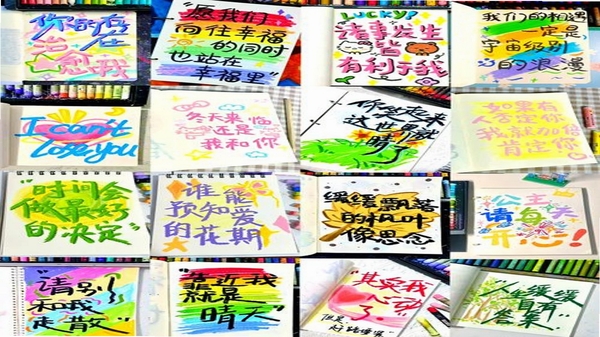 你的存在
治愈我
"愿我们
向往幸福
的同时
也站在
幸福里"
LUCKY?
诸事发生
皆
有利于我
我们的相遇
一定是
宇宙级别
的浪漫
I can't
Lose you
冬天来临
还是
我和你
你笑起来
这世界就
晴了
如果有
人否定你
我就加倍
肯定你
"时间会
做最好
的决定"
谁能
预知爱
的花期
缓缓飘落
的枫叶
像思念
公主
请每天
开心!
"请别
和我
走散"
"靠近我
就是
晴天"
"其实我
心动了
但是
"人生缓缓
自有
答案"